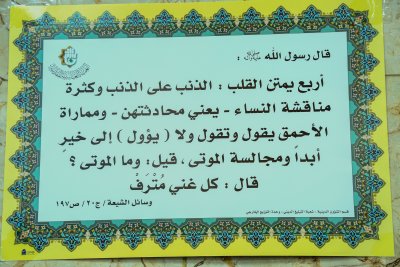 قال رسول الله ﷺ :
أربع يمتن القلب : الذنب على الذنب وكثرة
مناقشة النساء - يعني محادثتهن - ومماراة
الأحمق يقول وتقول ولا ( يؤول ) إلى خيرٍ
أبداً ومجالسة الموتى ، قيل : وما الموتى ؟
قال : كل غني مُتْرَفْ
وسائل الشيعة / ج٢٠ / ص١٩٧
قسم الشؤون الدينية - شعبة التبليغ الديني - وحدة التوزيع الخارجي